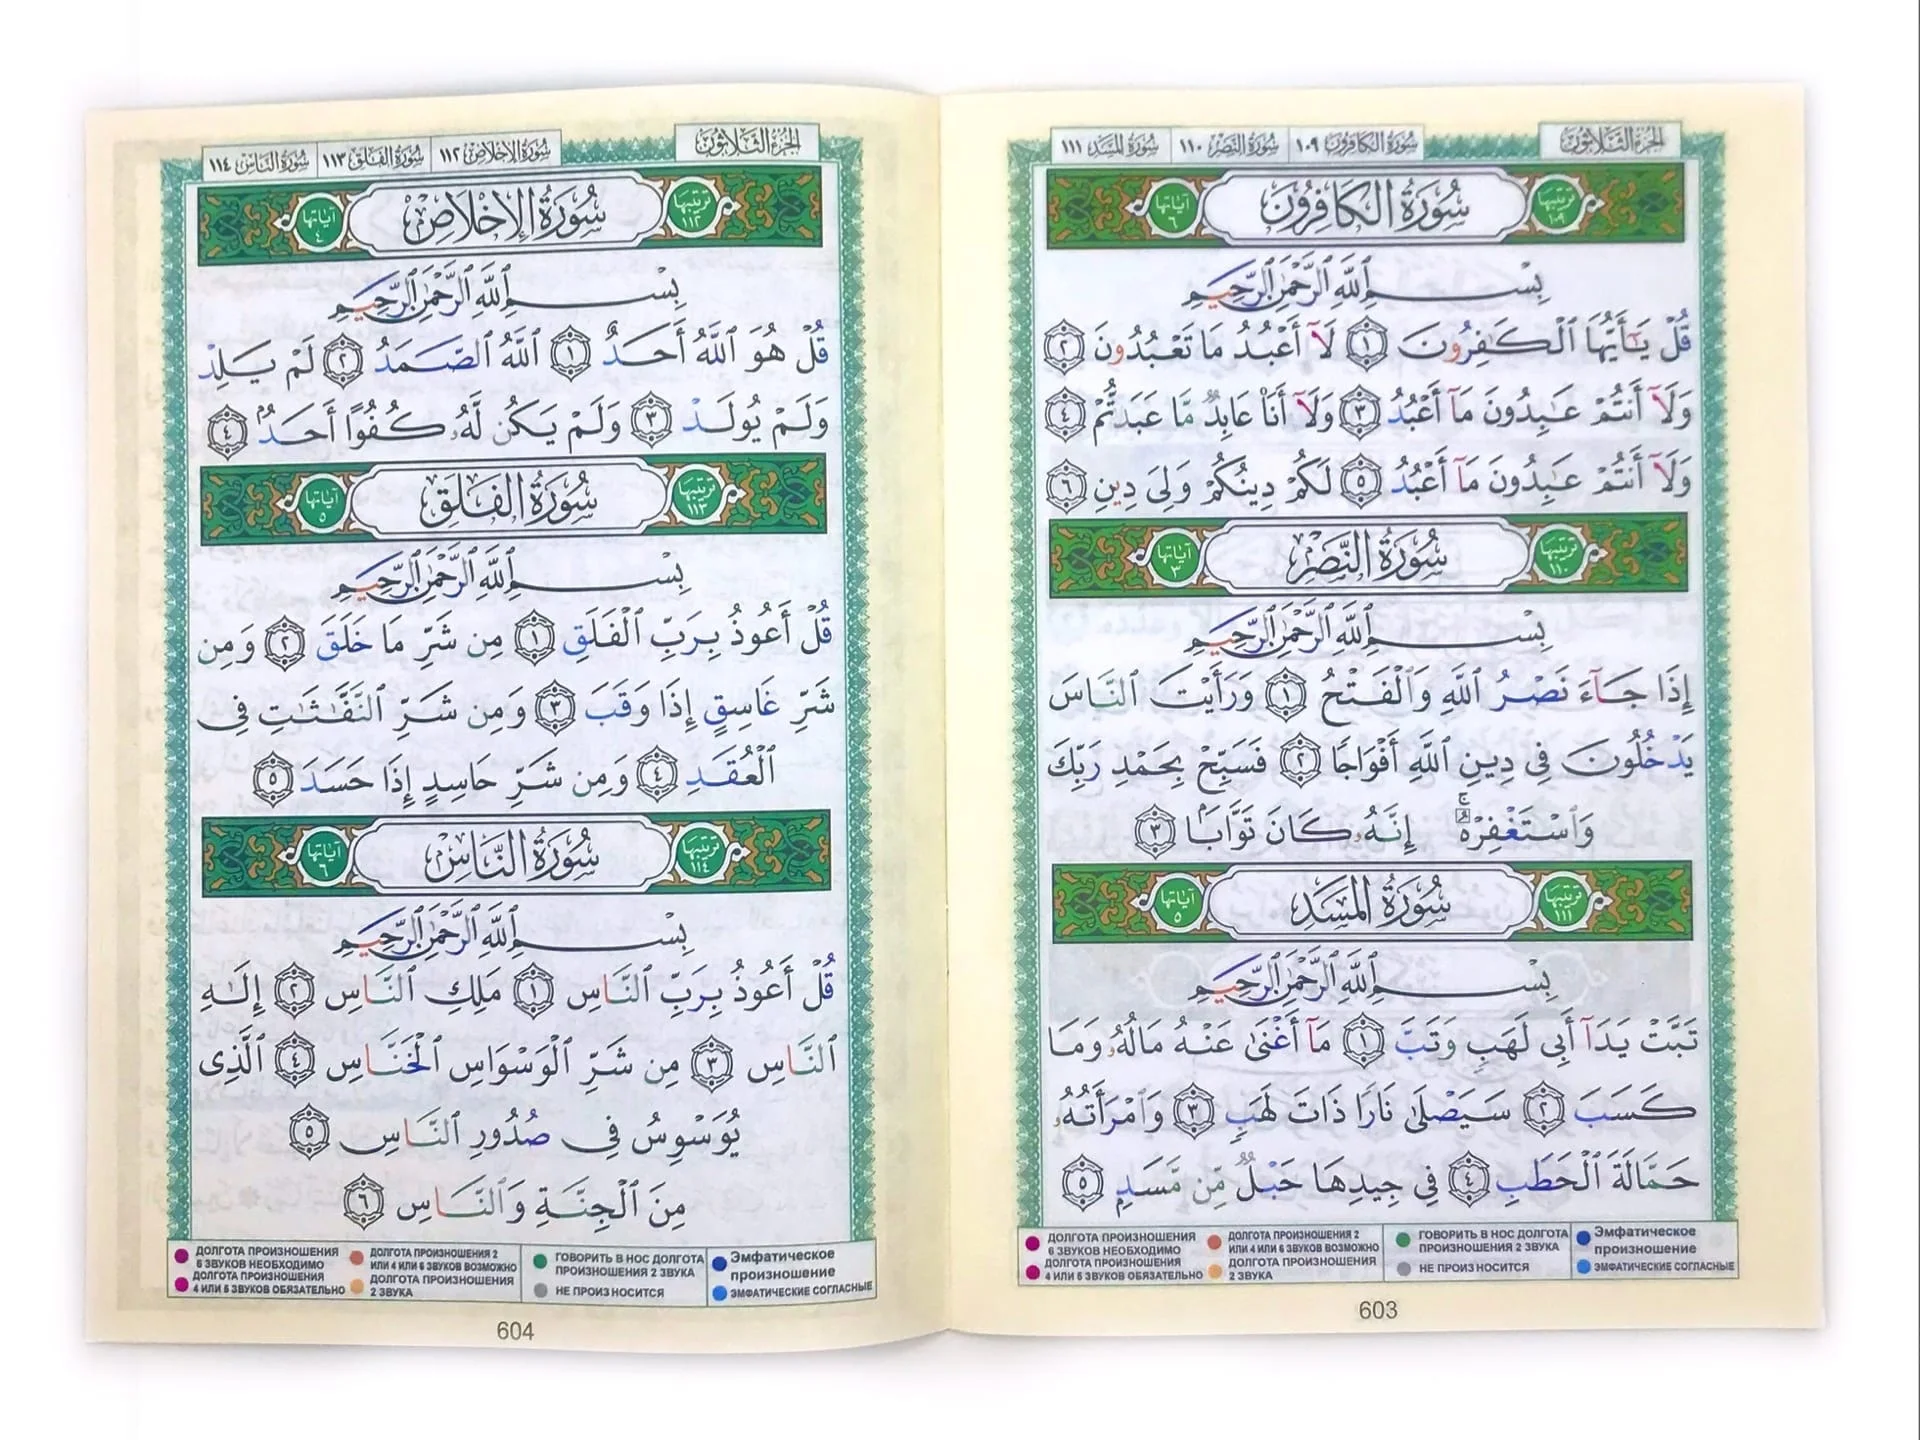 الجزء الثلاثون
سورة الكافرون ١٠٩
سورة النصر ١١٠
سورة المسد ١١١
ترتيبها ١٠٩
سُورَةُ الكَافِرُونَ
آياتها ٦
بِسْمِ ٱللَّهِ ٱلرَّحْمَٰنِ ٱلرَّحِيمِ
قُلْ يَٰٓأَيُّهَا ٱلْكَٰفِرُونَ ١ لَآ أَعْبُدُ مَا تَعْبُدُونَ ٢
وَلَآ أَنتُمْ عَٰبِدُونَ مَآ أَعْبُدُ ٣ وَلَآ أَنَا۠ عَابِدٌ مَّا عَبَدتُّمْ ٤
وَلَآ أَنتُمْ عَٰبِدُونَ مَآ أَعْبُدُ ٥ لَكُمْ دِينُكُمْ وَلِىَ دِينِ ٦
ترتيبها ١١٠
سُورَةُ النَّصْرِ
آياتها ٣
بِسْمِ ٱللَّهِ ٱلرَّحْمَٰنِ ٱلرَّحِيمِ
إِذَا جَآءَ نَصْرُ ٱللَّهِ وَٱلْفَتْحُ ١ وَرَأَيْتَ ٱلنَّاسَ
يَدْخُلُونَ فِى دِينِ ٱللَّهِ أَفْوَاجًا ٢ فَسَبِّحْ بِحَمْدِ رَبِّكَ
وَٱسْتَغْفِرْهُ ۚ إِنَّهُۥ كَانَ تَوَّابًۢا ٣
ترتيبها ١١١
سُورَةُ المَسَدِ
آياتها ٥
بِسْمِ ٱللَّهِ ٱلرَّحْمَٰنِ ٱلرَّحِيمِ
تَبَّتْ يَدَآ أَبِى لَهَبٍ وَتَبَّ ١ مَآ أَغْنَىٰ عَنْهُ مَالُهُۥ وَمَا
كَسَبَ ٢ سَيَصْلَىٰ نَارًا ذَاتَ لَهَبٍ ٣ وَٱمْرَأَتُهُۥ
حَمَّالَةَ ٱلْحَطَبِ ٤ فِى جِيدِهَا حَبْلٌ مِّن مَّسَدٍۭ ٥
ДОЛГОТА ПРОИЗНОШЕНИЯ
6 ЗВУКОВ НЕОБХОДИМО
ДОЛГОТА ПРОИЗНОШЕНИЯ
4 ИЛИ 5 ЗВУКОВ ОБЯЗАТЕЛЬНО
ДОЛГОТА ПРОИЗНОШЕНИЯ 2
ИЛИ 4 ИЛИ 6 ЗВУКОВ ВОЗМОЖНО
ДОЛГОТА ПРОИЗНОШЕНИЯ
2 ЗВУКА
ГОВОРИТЬ В НОС ДОЛГОТА
ПРОИЗНОШЕНИЯ 2 ЗВУКА
НЕ ПРОИЗНОСИТСЯ
Эмфатическое
произношение
ЭМФАТИЧЕСКИЕ СОГЛАСНЫЕ
603
الجزء الثلاثون
سورة الإخلاص ١١٢
سورة الفلق ١١٣
سورة الناس ١١٤
ترتيبها ١١٢
سُورَةُ الإِخْلَاصِ
آياتها ٤
بِسْمِ ٱللَّهِ ٱلرَّحْمَٰنِ ٱلرَّحِيمِ
قُلْ هُوَ ٱللَّهُ أَحَدٌ ١ ٱللَّهُ ٱلصَّمَدُ ٢ لَمْ يَلِدْ
وَلَمْ يُولَدْ ٣ وَلَمْ يَكُن لَّهُۥ كُفُوًا أَحَدٌۢ ٤
ترتيبها ١١٣
سُورَةُ الفَلَقِ
آياتها ٥
بِسْمِ ٱللَّهِ ٱلرَّحْمَٰنِ ٱلرَّحِيمِ
قُلْ أَعُوذُ بِرَبِّ ٱلْفَلَقِ ١ مِن شَرِّ مَا خَلَقَ ٢ وَمِن
شَرِّ غَاسِقٍ إِذَا وَقَبَ ٣ وَمِن شَرِّ ٱلنَّفَّٰثَٰتِ فِى
ٱلْعُقَدِ ٤ وَمِن شَرِّ حَاسِدٍ إِذَا حَسَدَ ٥
ترتيبها ١١٤
سُورَةُ النَّاسِ
آياتها ٦
بِسْمِ ٱللَّهِ ٱلرَّحْمَٰنِ ٱلرَّحِيمِ
قُلْ أَعُوذُ بِرَبِّ ٱلنَّاسِ ١ مَلِكِ ٱلنَّاسِ ٢ إِلَٰهِ
ٱلنَّاسِ ٣ مِن شَرِّ ٱلْوَسْوَاسِ ٱلْخَنَّاسِ ٤ ٱلَّذِى
يُوَسْوِسُ فِى صُدُورِ ٱلنَّاسِ ٥
مِنَ ٱلْجِنَّةِ وَٱلنَّاسِ ٦
ДОЛГОТА ПРОИЗНОШЕНИЯ
6 ЗВУКОВ НЕОБХОДИМО
ДОЛГОТА ПРОИЗНОШЕНИЯ
4 ИЛИ 5 ЗВУКОВ ОБЯЗАТЕЛЬНО
ДОЛГОТА ПРОИЗНОШЕНИЯ 2
ИЛИ 4 ИЛИ 6 ЗВУКОВ ВОЗМОЖНО
ДОЛГОТА ПРОИЗНОШЕНИЯ
2 ЗВУКА
ГОВОРИТЬ В НОС ДОЛГОТА
ПРОИЗНОШЕНИЯ 2 ЗВУКА
НЕ ПРОИЗНОСИТСЯ
Эмфатическое
произношение
ЭМФАТИЧЕСКИЕ СОГЛАСНЫЕ
604